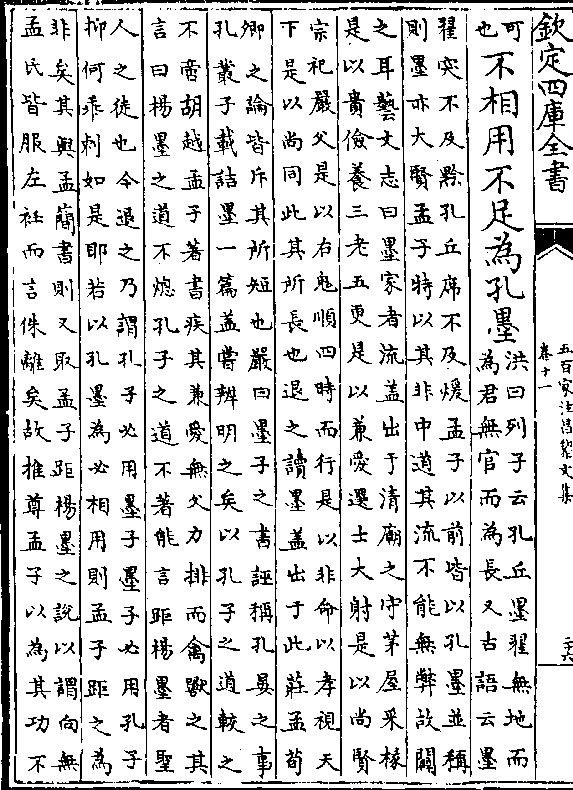 欽定四庫全書
五百家注昌黎文集
卷十一
二十六
可
也
不相用不足為孔墨
洪曰列子云孔丘墨翟無地而
為君無官而為長又古語云墨
翟突不及黔孔丘席不及煖孟子以前皆以孔墨並稱
則墨亦大賢孟子特以其非中道其流不能無弊故闢
之耳藝文志曰墨家者流蓋出于清廟之守茅屋采椽
是以貴儉養三老五更是以兼愛選士大射是以尚賢
宗祀嚴父是以右鬼順四時而行是以非命以孝視天
下是以尚同此其所長也退之讀墨蓋出于此莊孟荀
卿之論皆斥其所短也嚴曰墨子之書誣稱孔晏之事
孔叢子載詰墨一篇蓋嘗辨明之矣以孔子之道較之
不啻胡越孟子著書疾其兼愛無父力排而禽獸之其
言曰楊墨之道不熄孔子之道不著能言距楊墨者聖
人之徒也今退之乃謂孔子必用墨子墨子必用孔子
抑何乖剌如是耶若以孔墨為必相用則孟子距之為
非矣其與孟簡書則又取孟子距楊墨之說以謂向無
孟氏皆服左衽而言侏離矣故推尊孟子以為其功不